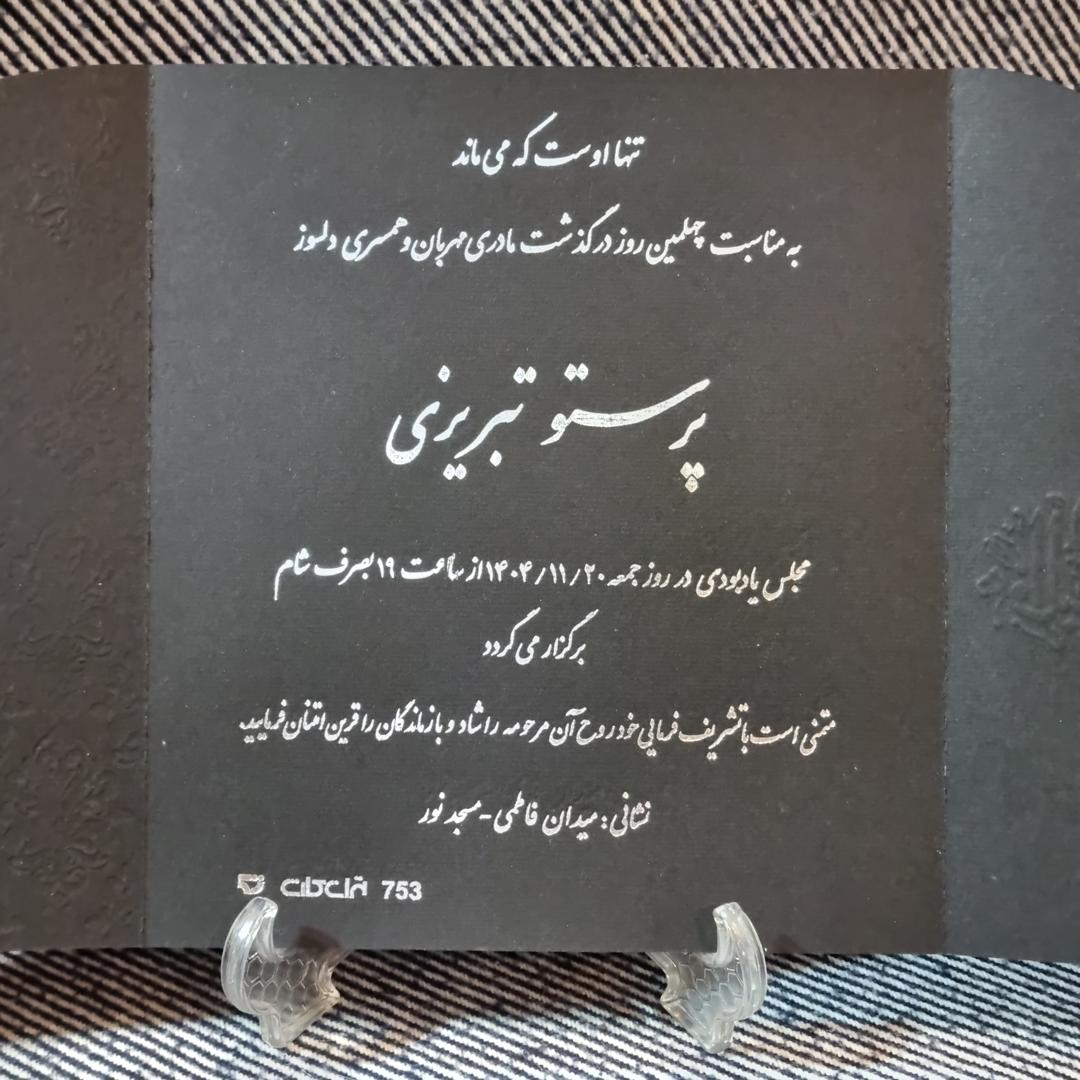 تنها اوست که می ماند
به مناسبت چهلمین روز درگذشت مادری مهربان و همسری دلسوز
پرستو تبریزی
مجلس یادبودی در روز جمعه ۱۴۰۴/۱۱/۲۰ از ساعت ۱۹ بصرف شام
برگزار می گردد
متمنی است با تشریف فرمایی خود روح آن مرحومه را شاد و بازماندگان را قرین امتنان فرمایید.
نشانی : میدان فاطمی - مسجد نور
753